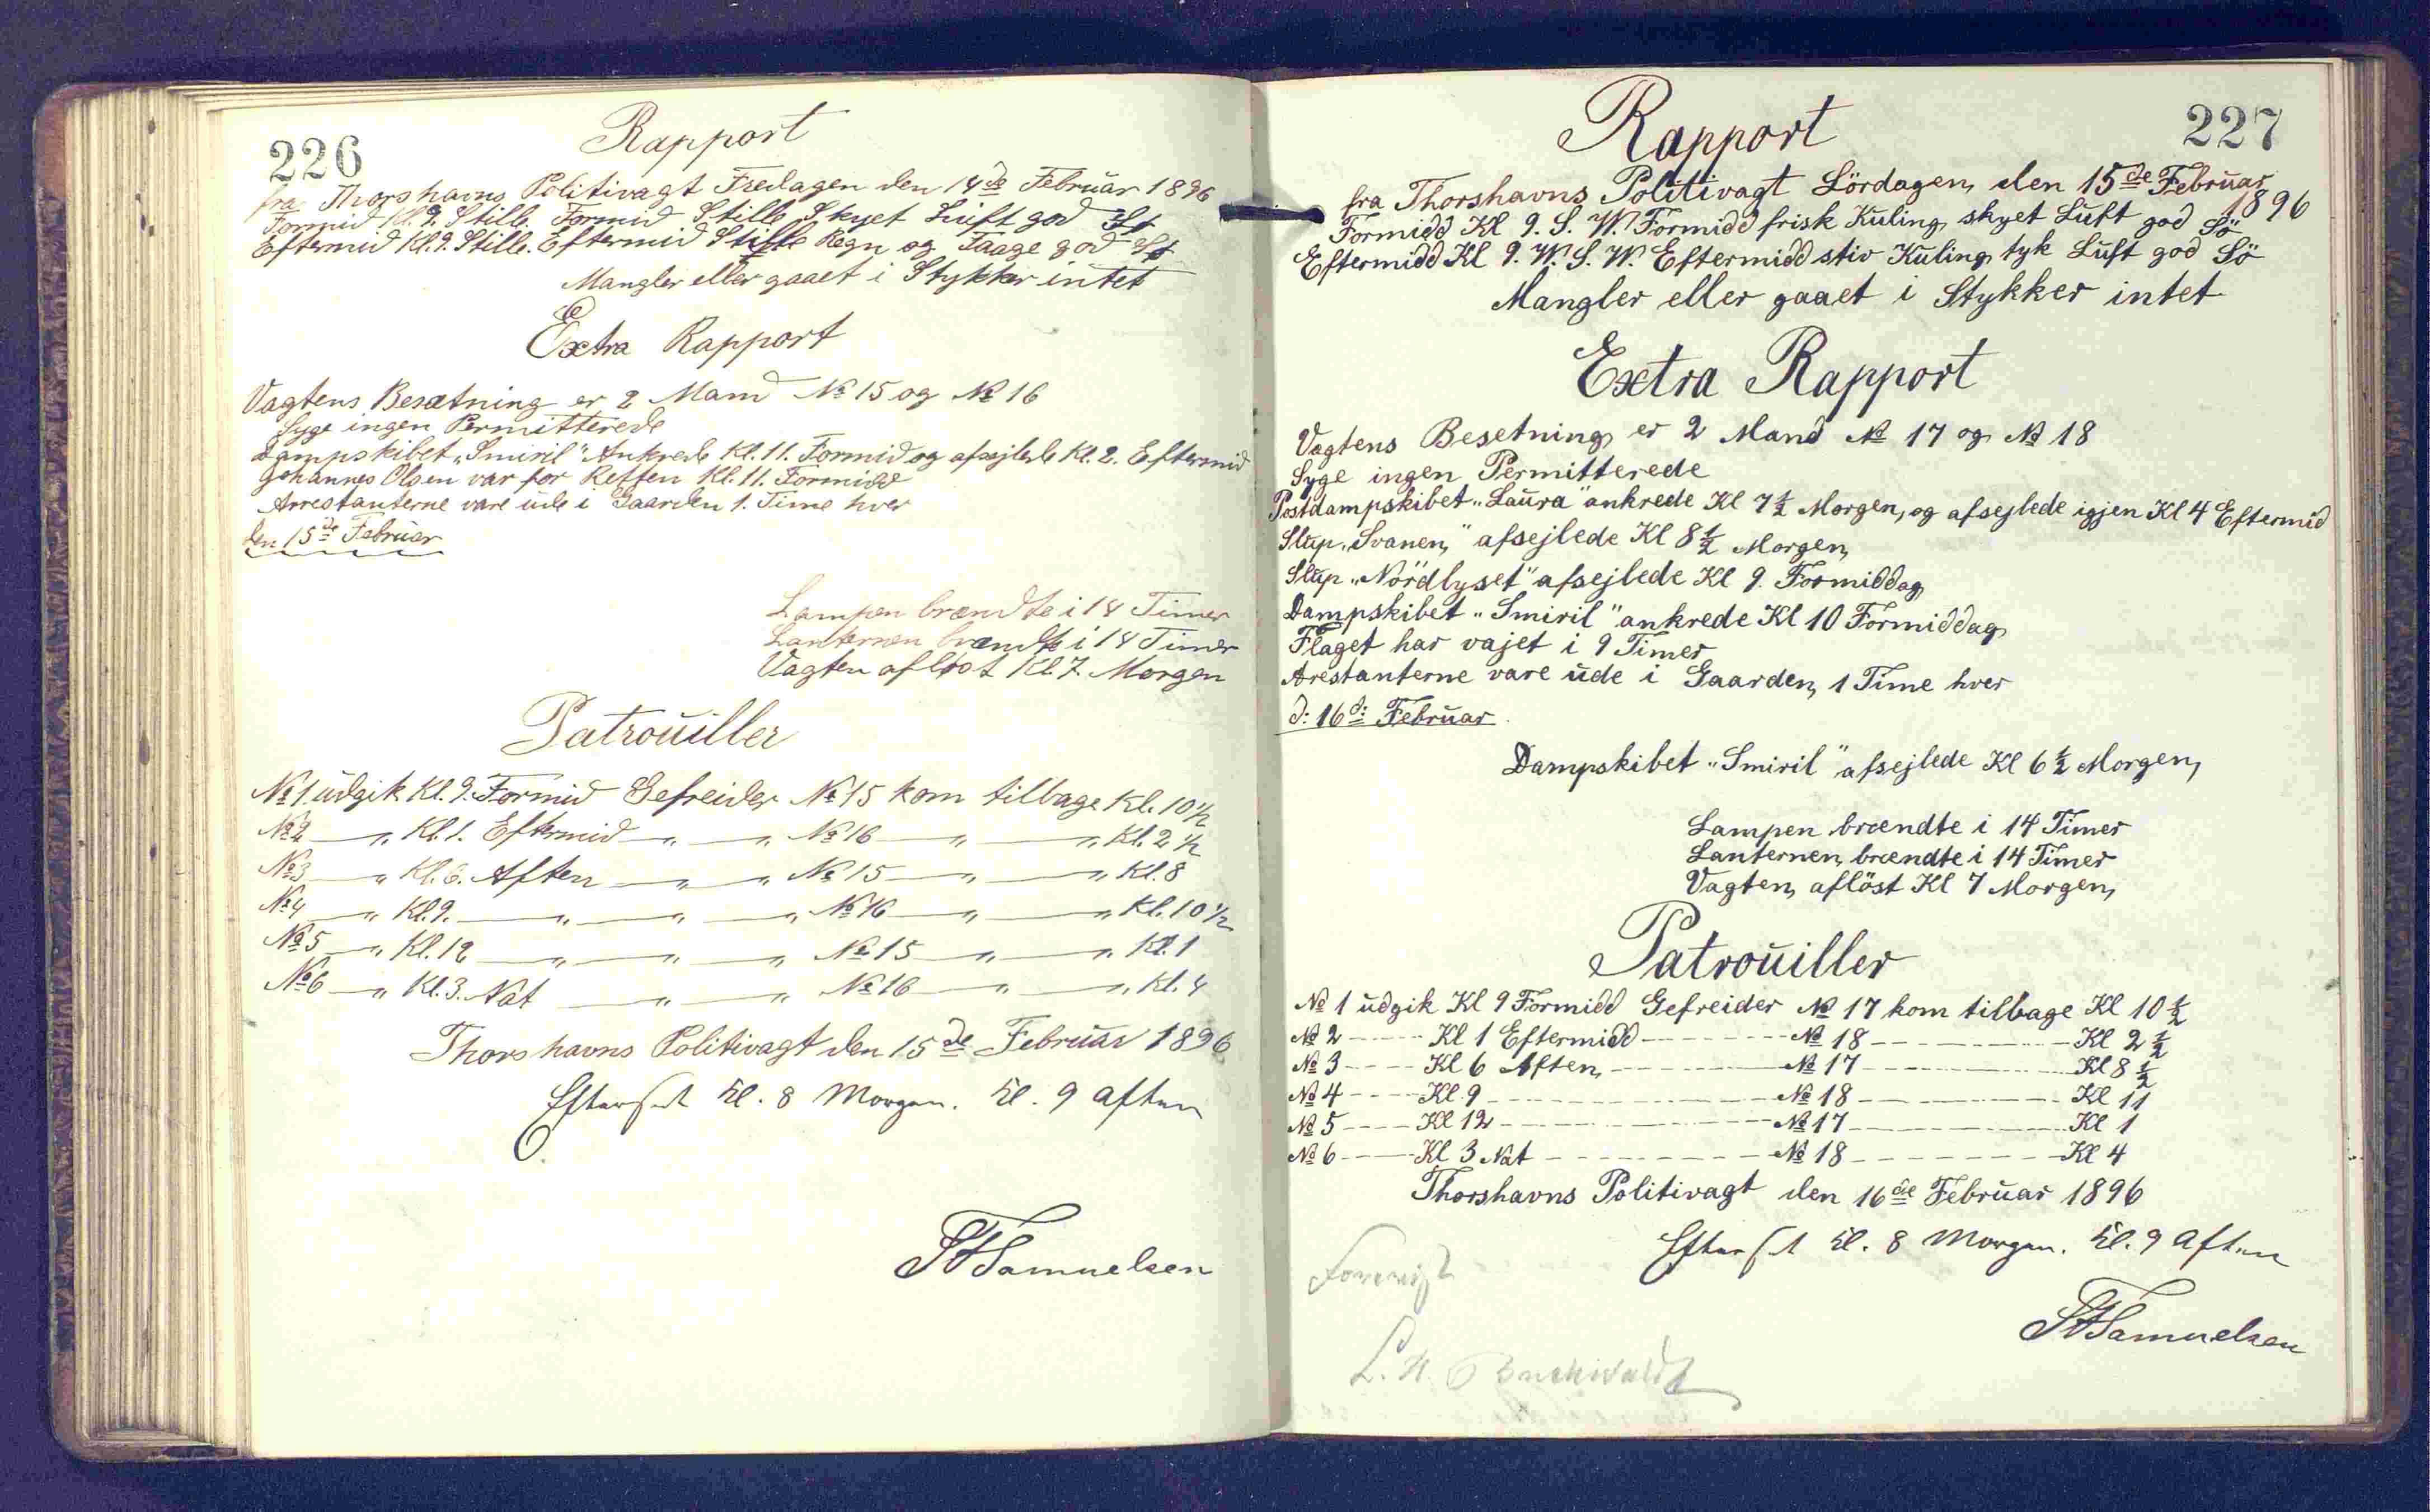 226
Rapport
fra Thorshavns Politivagt Fredagen den 14de Februar 1896
Formid Kl. 9. Stille. Formid Stille Skyet Luft god Sø
Eftermid Kl. 9. Stille. Eftermid Stille Regn og Taage god Sø
Mangler eller gaaet i Stykker intet
Extra Rapport
Vagtens Besætning er 2 Mand No 15 og No 16
Syge ingen Permitterede
Dampskibet „Smiril" Ankrede Kl. 11. Formid og afsejlede Kl. 2. Eftermid
Johannes Olsen var for Retten Kl. 11. Formidd
Arrestanterne vare ude i Gaarden 1. Time hver
den 15de Februar
Lampen brændte i 14 Timer
Lanternen brændte i 14 Timer
Vagten afløst Kl. 7. Morgen
Patrouiller
No 1 udgik Kl. 9. Formid Gefreider No 15 kom tilbage Kl. 10 1/2
No 2 — „ Kl. 1. Eftermid — „ — „ No 16 — „ — „ Kl. 2 1/2
No 3 — „ Kl. 6. Aften — „ — „ No 15 — „ — „ Kl. 8
No 4 — „ Kl. 9. — „ — „ — „ No 16 — „ — „ Kl. 10 1/2
No 5 — „ Kl. 12 — „ — „ — „ No 15 — „ — „ Kl. 1
No 6 — „ Kl. 3. Nat — „ — „ No 16 — „ — „ Kl. 4
Thorshavns Politivagt den 15de Februar 1896
Efterset Kl. 8 Morgen. Kl. 9 Aften
Samuelsen
227
Rapport
fra Thorshavns Politivagt Lördagen den 15de Februar
1896
Formidd Kl 9. S. W. Formidd frisk Kuling skyet Luft god Sö
Eftermidd Kl 9. W. S. W. Eftermidd stiv Kuling tyk Luft god Sö
Mangler eller gaaet i Stykker intet
Extra Rapport
Vagtens Besetning er 2 Mand No 17 og No 18
Syge ingen Permitterede
Postdampskibet „Laura" ankrede Kl 7 1/2 Morgen, og afsejlede igjen Kl 4 Eftermid
Slup „Svanen" afsejlede Kl 8 1/2 Morgen
Slup „Nordlyset" afsejlede Kl 9. Formiddag
Dampskibet „Smiril" ankrede Kl 10 Formiddag
Flaget har vajet i 9 Timer
Arestanterne vare ude i Gaarden 1 Time hver
d: 16d: Februar
Dampskibet „Smiril" afsejlede Kl 6 1/2 Morgen
Lampen brændte i 14 Timer
Lanternen brændte i 14 Timer
Vagten aflöst Kl 7 Morgen
Patrouiller
No 1 udgik Kl 9 Formidd Gefreider No 17 kom tilbage Kl 10 1/2
No 2 ---- Kl 1 Eftermidd ---- No 18 ---- Kl 2 1/2
No 3 ---- Kl 6 Aften ---- No 17 ---- Kl 8 1/2
No 4 ---- Kl 9 ---- No 18 ---- Kl 11
No 5 ---- Kl 12 ---- No 17 ---- Kl 1
No 6 ---- Kl 3 Nat ---- No 18 ---- Kl 4
Thorshavns Politivagt den 16de Februar 1896
Efterset Kl. 8 Morgen. Kl. 9 Aften
Samuelsen
Forevist
L. H. Buchwaldt